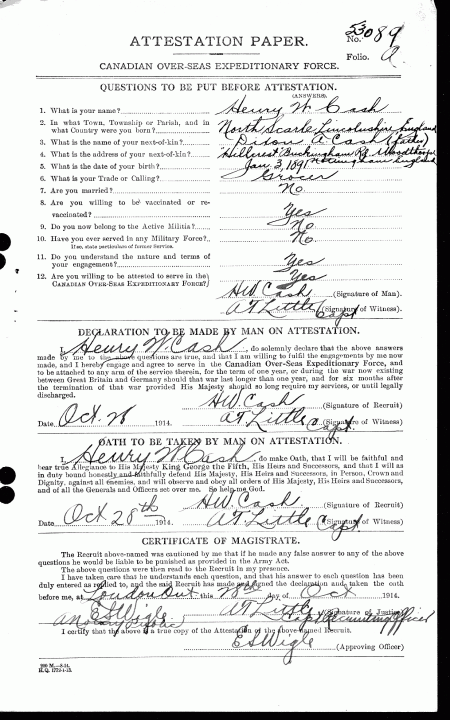 No. 53089
ATTESTATION PAPER.
Folio. a
CANADIAN OVER-SEAS EXPEDITIONARY FORCE.
QUESTIONS TO BE PUT BEFORE ATTESTATION.
(ANSWERS).
1. What is your name? Henry W. Cash
2. In what Town, Township or Parish, and in
what Country were you born? North Scarle Lincolnshire England
3. What is the name of your next-of-kin? Dixon A Cash (father)
4. What is the address of your next-of-kin? "Hillcrest" Buckingham Rd. Woodthorpe
Nottingham England
5. What is the date of your birth? Jany 3, 1891
6. What is your Trade or Calling? Grocer
7. Are you married? No
8. Are you willing to be vaccinated or re-
vaccinated? Yes
9. Do you now belong to the Active Militia? No
10. Have you ever served in any Military Force? No
If so, state particulars of former Service.
11. Do you understand the nature and terms of
your engagement? Yes
12. Are you willing to be attested to serve in the
CANADIAN OVER-SEAS EXPEDITIONARY FORCE? Yes
HW. Cash (Signature of Man).
A T Little Capt (Signature of Witness).
DECLARATION TO BE MADE BY MAN ON ATTESTATION.
I, Henry W. Cash, do solemnly declare that the above answers
made by me to the above questions are true, and that I am willing to fulfil the engagements by me now
made, and I hereby engage and agree to serve in the Canadian Over-Seas Expeditionary Force, and
to be attached to any arm of the service therein, for the term of one year, or during the war now existing
between Great Britain and Germany should that war last longer than one year, and for six months after
the termination of that war provided His Majesty should so long require my services, or until legally
discharged.
HW. Cash (Signature of Recruit)
Date Oct 28 1914. A T Little Capt. (Signature of Witness)
OATH TO BE TAKEN BY MAN ON ATTESTATION.
I, Henry W. Cash, do make Oath, that I will be faithful and
bear true Allegiance to His Majesty King George the Fifth, His Heirs and Successors, and that I will as
in duty bound honestly and faithfully defend His Majesty, His Heirs and Successors, in Person, Crown and
Dignity, against all enemies, and will observe and obey all orders of His Majesty, His Heirs and Successors,
and of all the Generals and Officers set over me. So help me God.
HW. Cash (Signature of Recruit)
Date Oct 28th 1914. A T Little Capt (Signature of Witness)
CERTIFICATE OF MAGISTRATE.
The Recruit above-named was cautioned by me that if he made any false answer to any of the above
questions he would be liable to be punished as provided in the Army Act.
The above questions were then read to the Recruit in my presence.
I have taken care that he understands each question, and that his answer to each question has been
duly entered as replied to, and the said Recruit has made and signed the declaration and taken the oath
before me, at London Ont this 28th day of Oct 1914.
E S Wigle A T Little (Signature of Justice)
A Notary Public Capt Recruiting Officer
I certify that the above is a true copy of the Attestation of the above-named Recruit.
E S Wigle
(Approving Officer)
H.Q. 1772-1-13.